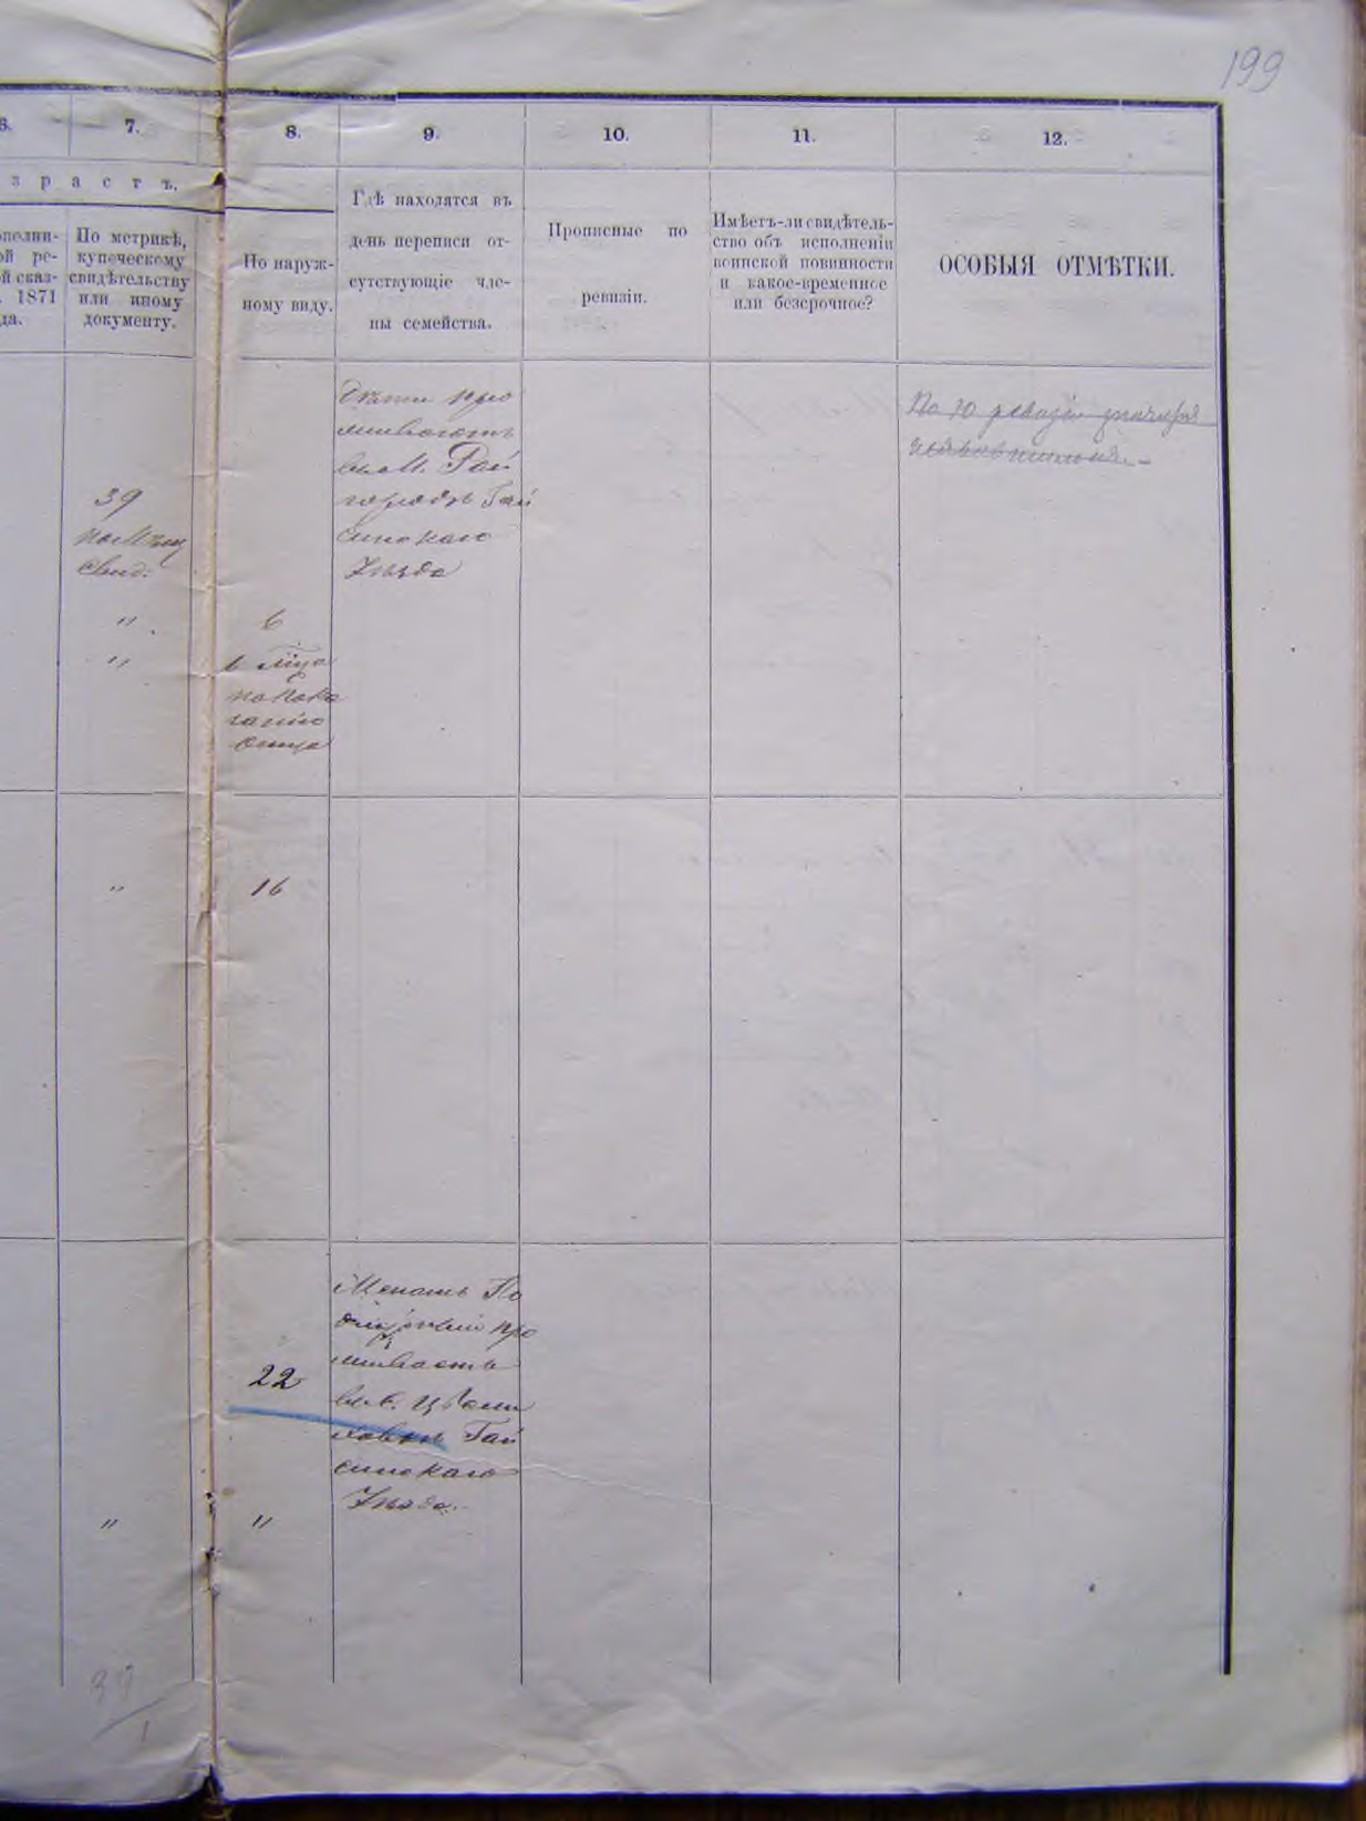 199
6.
7.
8.
9.
10.
11.
12.
зрастъ.
ополни-
ой ре-
ой сказ-
. 1871
да.
По метрикѣ,
купеческому
свидѣтельству
или иному
документу.
По наруж-
ному виду.
Гдѣ находятся въ
день переписи от-
сутствующіе чле-
ны семейства.
Прописные по
ревизіи.
Имѣетъ-ли свидѣтель-
ство объ исполненіи
воинской повинности
и какое-временное
или безсрочное?
ОСОБЫЯ ОТМѢТКИ.
39
по Мѣщ
Свид:
"
"
6
1 м
по пока
занію
отца
Дѣти про
живаютъ
в м. Рай
городѣ Гай
синскаго
Уѣзда
По 10 ревизіи
"
16
22
"
"
про
живаетъ
в с.
Гай
синскаго
Уѣзда.
39
1